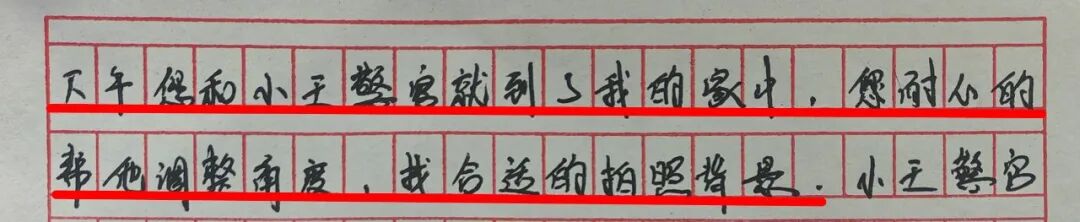 下午您和小王警官就到了我的家中，您耐心的
帮他调整角度，找合适的拍照背景．小王警官